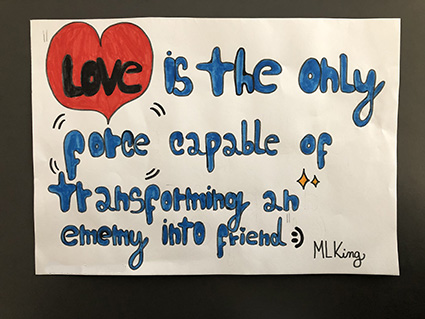 "LOVE is the only
force capable of
transforming an"
ememy into friend :)
MLKing